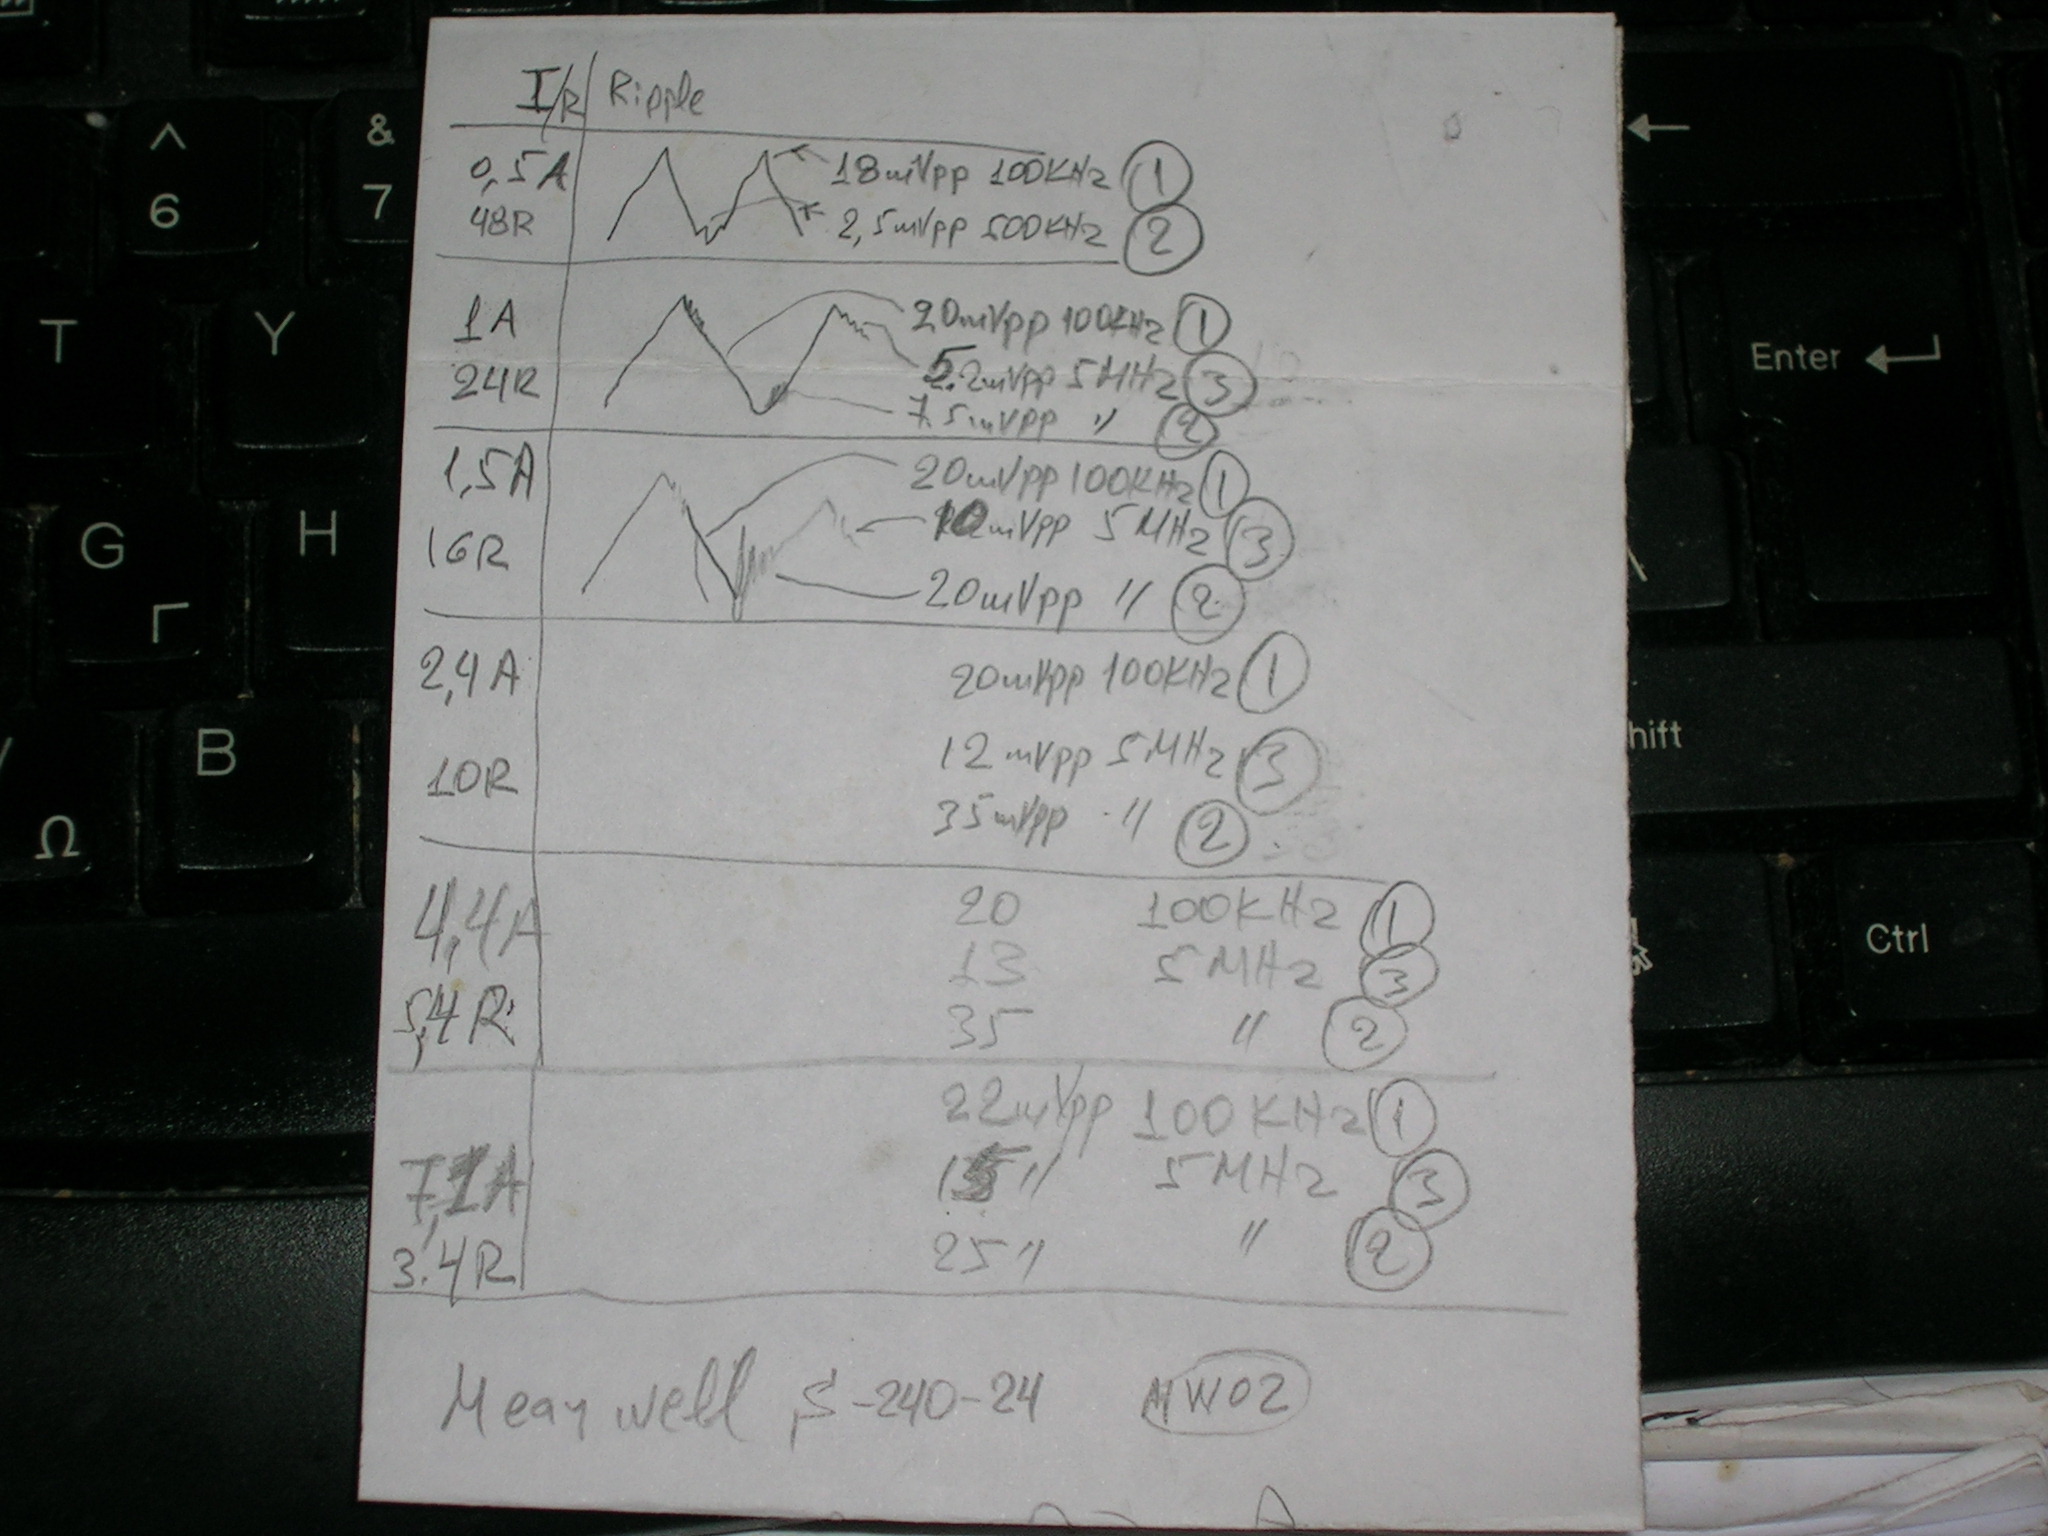 I/R Ripple
0,5A 18mVpp 100KHz 1
48R 2,5mVpp 500KHz 2
1A 20mVpp 100KHz 1
24R 5.2mVpp 5MHz 3
7.5mVpp " 2
1,5A 20mVpp 100KHz 1
16R 10mVpp 5MHz 3
20mVpp " 2
2,4A 20mVpp 100KHz 1
10R 12mVpp 5MHz 3
35mVpp " 2
4,4A 20 100KHz 1
13 5MHz 3
5,4R 35 " 2
22mVpp 100KHz 1
7,1A 15" 5MHz 3
3.4R 25" " 2
Meanwell S-240-24 MW02
^
6
&
7
T
Y
G
Γ
H
B
Ω
←
Enter
hift
Ctrl